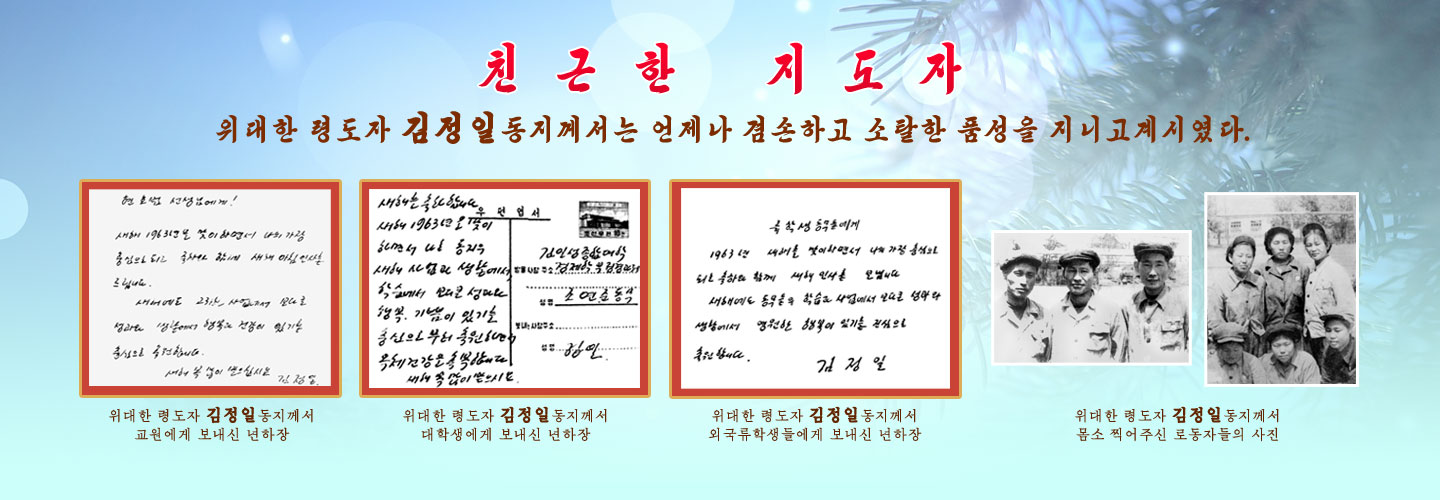 친근한 지도자
위대한 령도자 김정일동지께서는 언제나 겸손하고 소탈한 품성을 지니고계시였다.
선생님에게!
새해 1963년을 맞이하면서 나의 가장
충심으로 되는 축하와 함께 새해 인사를
드립니다.
새해에도 사업에서 보다 큰
성과와 생활에서 행복과 전망이 있기를
충심으로 축원합니다.
새해 복 많이 받으십시오
김정일
새해를 축하합니다
우편엽서
새해 1963년을 맞이
하면서 나는 동지의
새해 사업과 생활에서
학습에서 보다 큰 성과와
행복, 기쁨이 있기를
충심으로부터 축원하면서
육체건강을 축복합니다
새해 복 많이 받으시오.
김일성종합대학
받는사람주소
성명
동무
보내는사람주소
성명
류학생 동무들에게
1963년 새해를 맞이하면서 나의 가장 충심으로
되는 축하와 함께 새해 인사를 보냅니다
새해에도 동무들의 학습과 사업에서 보다 큰 성과와
생활에서 영원한 행복이 있기를 진심으로
축원합니다.
김정일
위대한 령도자 김정일동지께서
교원에게 보내신 년하장
위대한 령도자 김정일동지께서
대학생에게 보내신 년하장
위대한 령도자 김정일동지께서
외국류학생들에게 보내신 년하장
위대한 령도자 김정일동지께서
몸소 찍어주신 로동자들의 사진